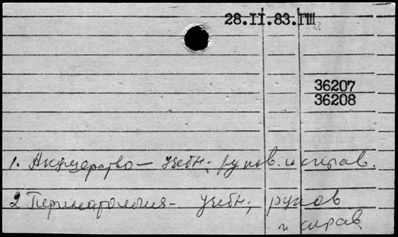 28.II.83.ГПI
36207
36208
1. Акушерство – учебн., руков. и справ.
2 Перинатология – учебн., руков
и справ